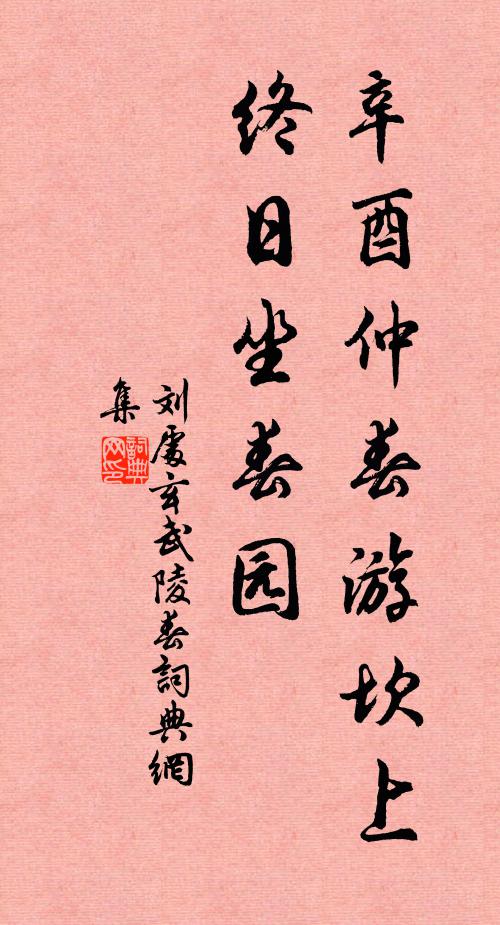 辛酉仲春游坎上
终日坐春园
刘处玄武陵春詞典網
集
詞典網印